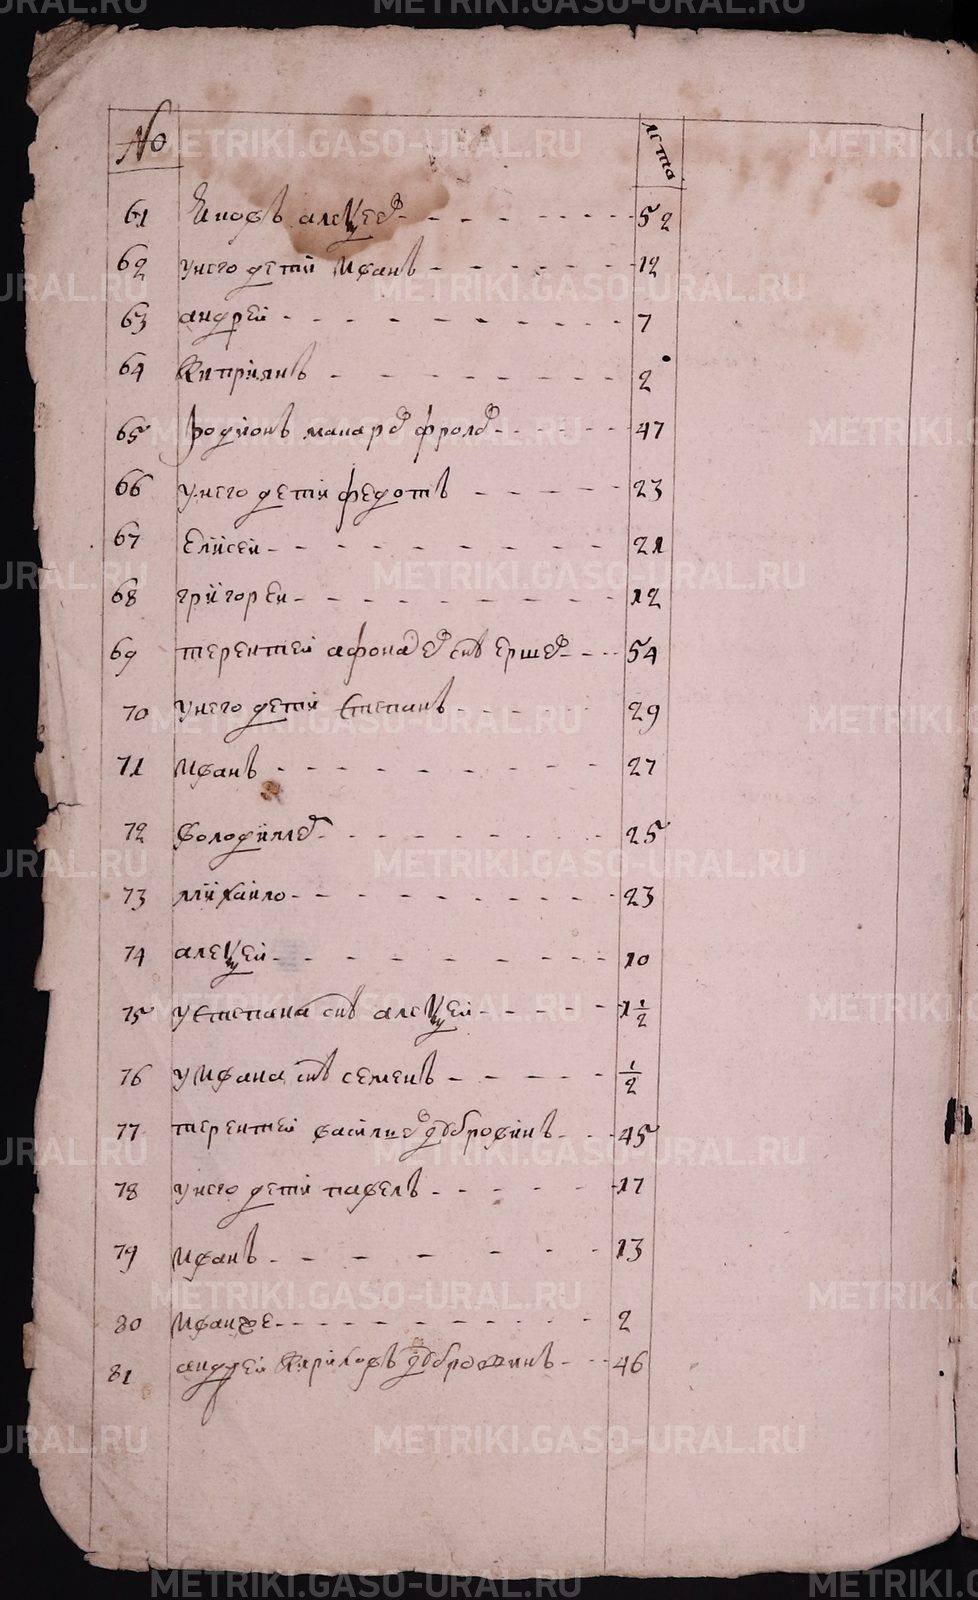 № лета
61 Яковъ алеѯеевъ 52
62 у него дети Иванъ 12
63 андрей 7
64 Киприянъ 2
65 родионъ макаровъ фроловъ 47
66 у него дети федотъ 23
67 Елисей 21
68 григорей 12
69 терентей афонасевъ снъ ершевъ 54
70 у него дети Степанъ 29
71 Иванъ 27
72 володимеръ 25
73 михайло 23
74 алеѯей 10
75 у Степана снъ алеѯей 1 1/2
76 у Ивана снъ семенъ 1/2
77 терентей василиевъ добровинъ 45
78 у него дети павелъ 17
79 Иванъ 13
80 Иван же 2
81 андрей Кириловъ добровинъ 46
METRIKI.GASO-URAL.RU